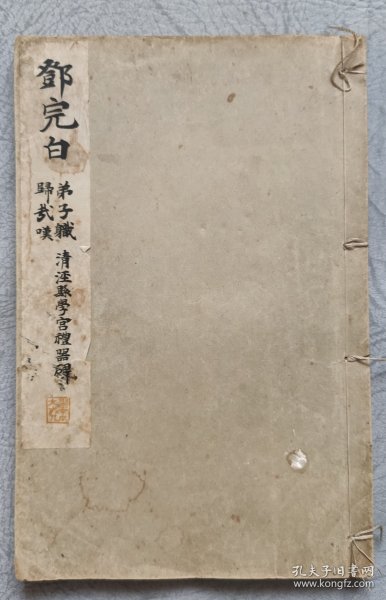 鄧完白
弟子職
歸去嘆
清涇縣學宮禮器碑
孔夫子旧书网